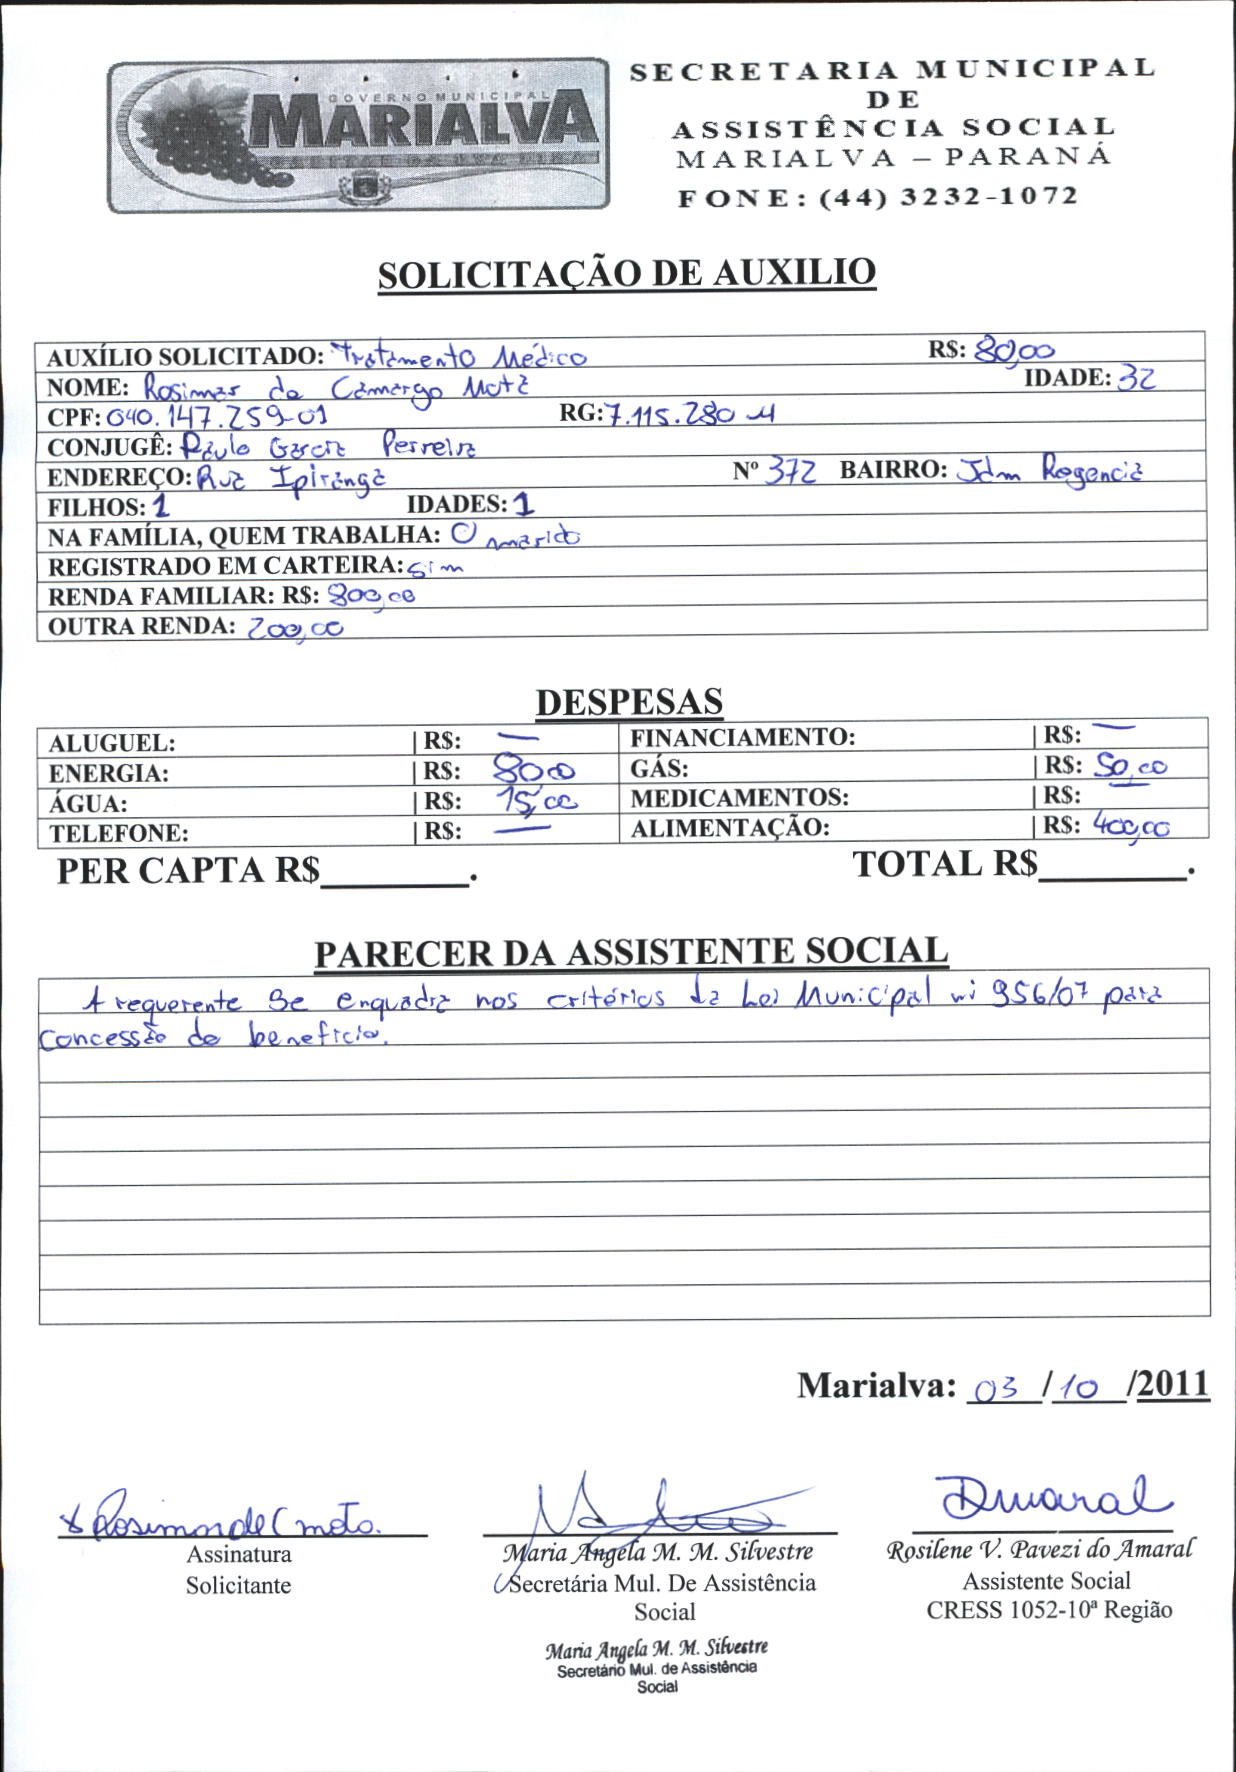 GOVERNO MUNICIPAL
MARIALVA
CAPITAL DA UVA FINA
SECRETARIA MUNICIPAL
DE
ASSISTÊNCIA SOCIAL
MARIALVA – PARANÁ
FONE: (44) 3232-1072
SOLICITAÇÃO DE AUXILIO
AUXÍLIO SOLICITADO: Tratamento Médico R$: 80,00
NOME: Rosimar de Camargo Mota IDADE: 32
CPF: 040.147.259-01 RG: 7.115.280-4
CONJUGÊ: Paulo Garcia Perreira
ENDEREÇO: Rua Ipiranga Nº 372 BAIRRO: Jdm Regencia
FILHOS: 1 IDADES: 1
NA FAMÍLIA, QUEM TRABALHA: O marido
REGISTRADO EM CARTEIRA: sim
RENDA FAMILIAR: R$: 800,00
OUTRA RENDA: 200,00
DESPESAS
ALUGUEL: | R$: — FINANCIAMENTO: | R$: —
ENERGIA: | R$: 80,00 GÁS: | R$: 50,00
ÁGUA: | R$: 15,00 MEDICAMENTOS: | R$: —
TELEFONE: | R$: — ALIMENTAÇÃO: | R$: 400,00
PER CAPTA R$________. TOTAL R$________.
PARECER DA ASSISTENTE SOCIAL
A requerente se enquadra nos critérios da Lei Municipal 956/07 para
concessão do benefício.
Marialva: 03 / 10 /2011
x Rosimar de C mota. Dmaral
Assinatura
Solicitante
Maria Angela M. M. Silvestre
Secretária Mul. De Assistência
Social
Maria Angela M. M. Silvestre
Secretário Mul. de Assistência
Social
Rosilene V. Pavezi do Amaral
Assistente Social
CRESS 1052-10ª Região